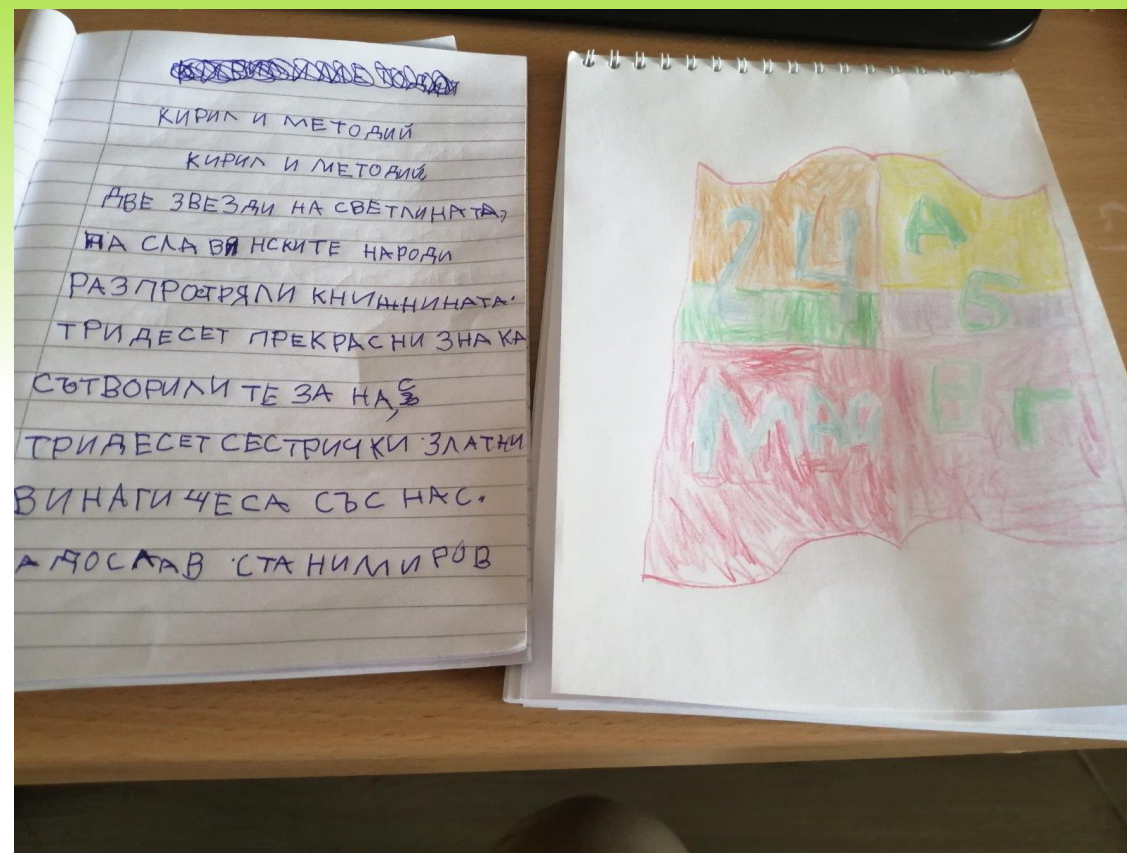 КИРИЛ И МЕТОДИЙ
КИРИЛ И МЕТОДИЙ
ДВЕ ЗВЕЗДИ НА СВЕТЛИНАТА,
НА СЛАВЯНСКИТЕ НАРОДИ
РАЗПРОСТРЯЛИ КНИЖНИНАТА.
ТРИДЕСЕТ ПРЕКРАСНИ ЗНАКА
СЪТВОРИЛИ ТЕ ЗА НАС,
ТРИДЕСЕТ СЕСТРИЧКИ ЗЛАТНИ
ВИНАГИ ЧЕСА СЪС НАС.
СТАНИМИРОВ
24
МАЙ
А
Б
В Г